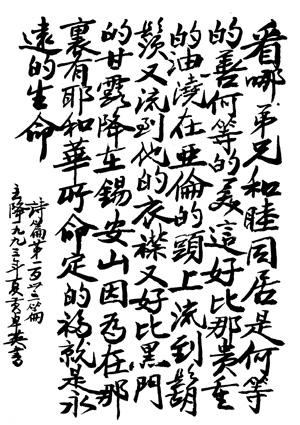 看哪弟兄和睦同居是何等
的善何等的美這好比那貴重
的油澆在亞倫的頭上流到鬍
鬚又流到他的衣襟又好比黑門
的甘露降在錫安山因為在那
裏有耶和華所命定的福就是永
遠的生命
詩篇第一百卅三篇
主降一九九三年夏